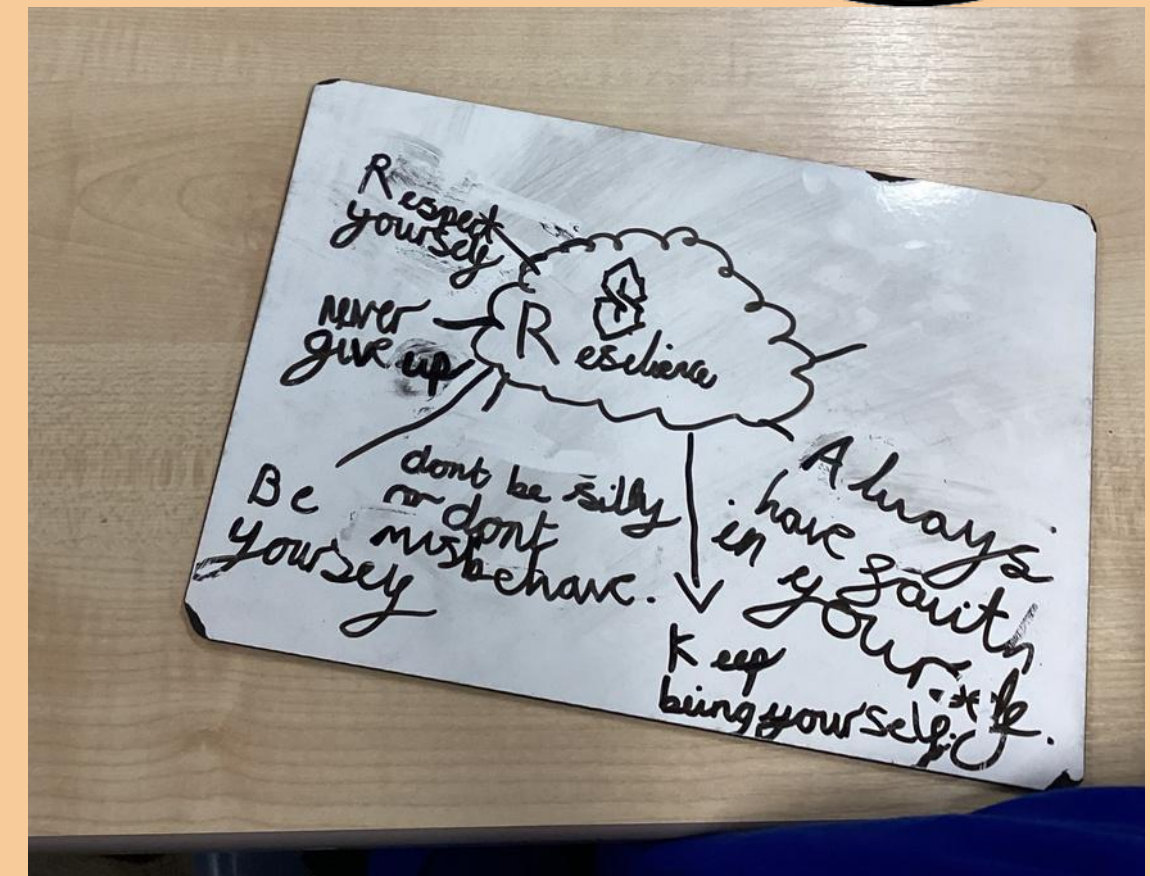 Respect
yourself
never
give up
Reselience
Be
yourself
dont be silly
dont
misbehave.
Always
have faith
in your
Keep
being yourself